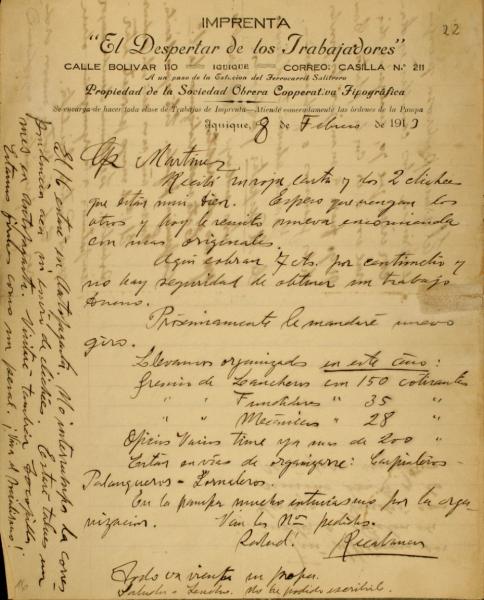 22
IMPRENTA
"El Despertar de los Trabajadores"
CALLE BOLIVAR 110 — IQUIQUE — CORREO: CASILLA N.º 211
A un paso de la Estacion del Ferrocarril Salitrero
Propiedad de la Sociedad Obrera Cooperativa Tipográfica
Se encarga de hacer toda clase de Trabajos de Imprenta—Atiende esmeradamente las órdenes de la Pampa
Iquique, 8 de Febrero de 1913
Martinez
Recibí suya carta y los 2 clichés
que están mui bien. Espero que vengan los
otros y hoy le remito nueva encomienda
con mas originales.
Aquí cobran 7 cts. por centímetro y
no hay seguridad de obtener un trabajo
bueno.
Próximamente le mandaré nuevo
giro.
Llevamos organizados en este año:
Gremio de Lancheros con 150 cotizantes
" " Fundidores " 35 "
" " Mecánicos " 28 "
Oficios Varios tiene ya mas de 200 "
Están en vías de organizarse: Carpinteros-
Palanqueros - Torneros.
En la pampa mucho entusiasmo por la orga-
nizacion. Van los Nos. pedidos.
Salud! Recabarren
Todo va viento en popa.
Saludos a No he podido escribirle.
El 16 estaré en Antofagasta. No interrumpa la corres-
pondencia con mi envío de clichés. Estaré talvez un
mes en Antofagasta. Visitaré tambien Tocopilla.
Estamos firmes como un peral. ¡Viva el Socialismo!